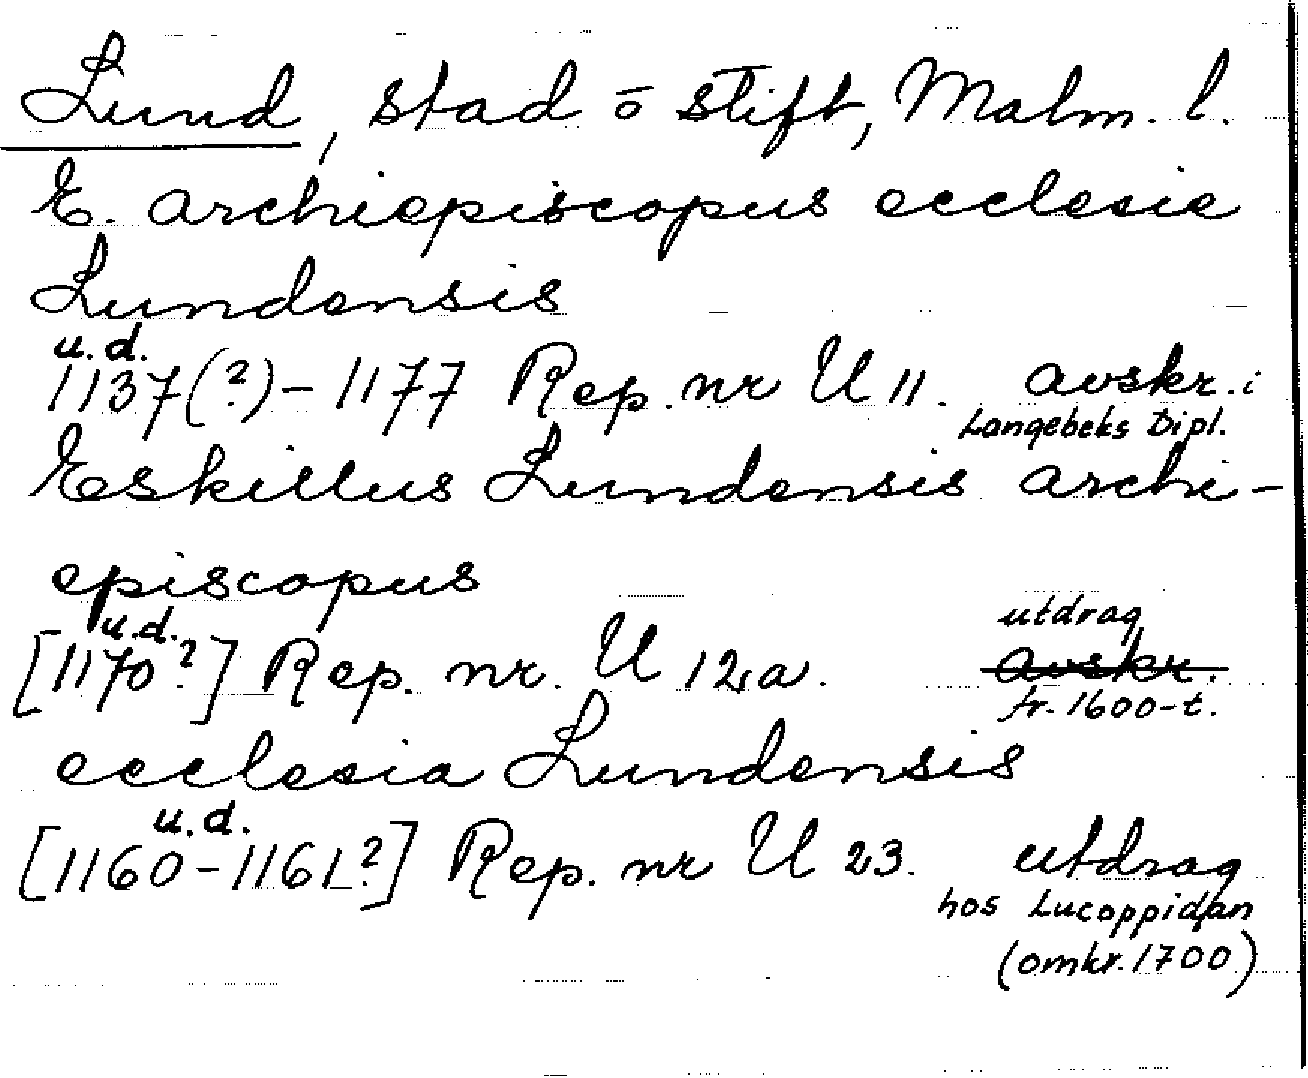 Lund, stad ō stift, Malm. l.
E. archiepiscopus ecclesie
Lundensis
u.d.
1137(?)-1177 Rep. nr U 11. avskr. i
Langebeks Dipl.
Eskillus Lundensis archi-
episcopus
u.d. utdrag
[1170?] Rep. nr. U 12,a. avskr.
fr. 1600-t.
ecclesia Lundensis
u.d.
[1160-1161?] Rep. nr U 23. utdrag
hos Lucoppidan
(omkr. 1700)